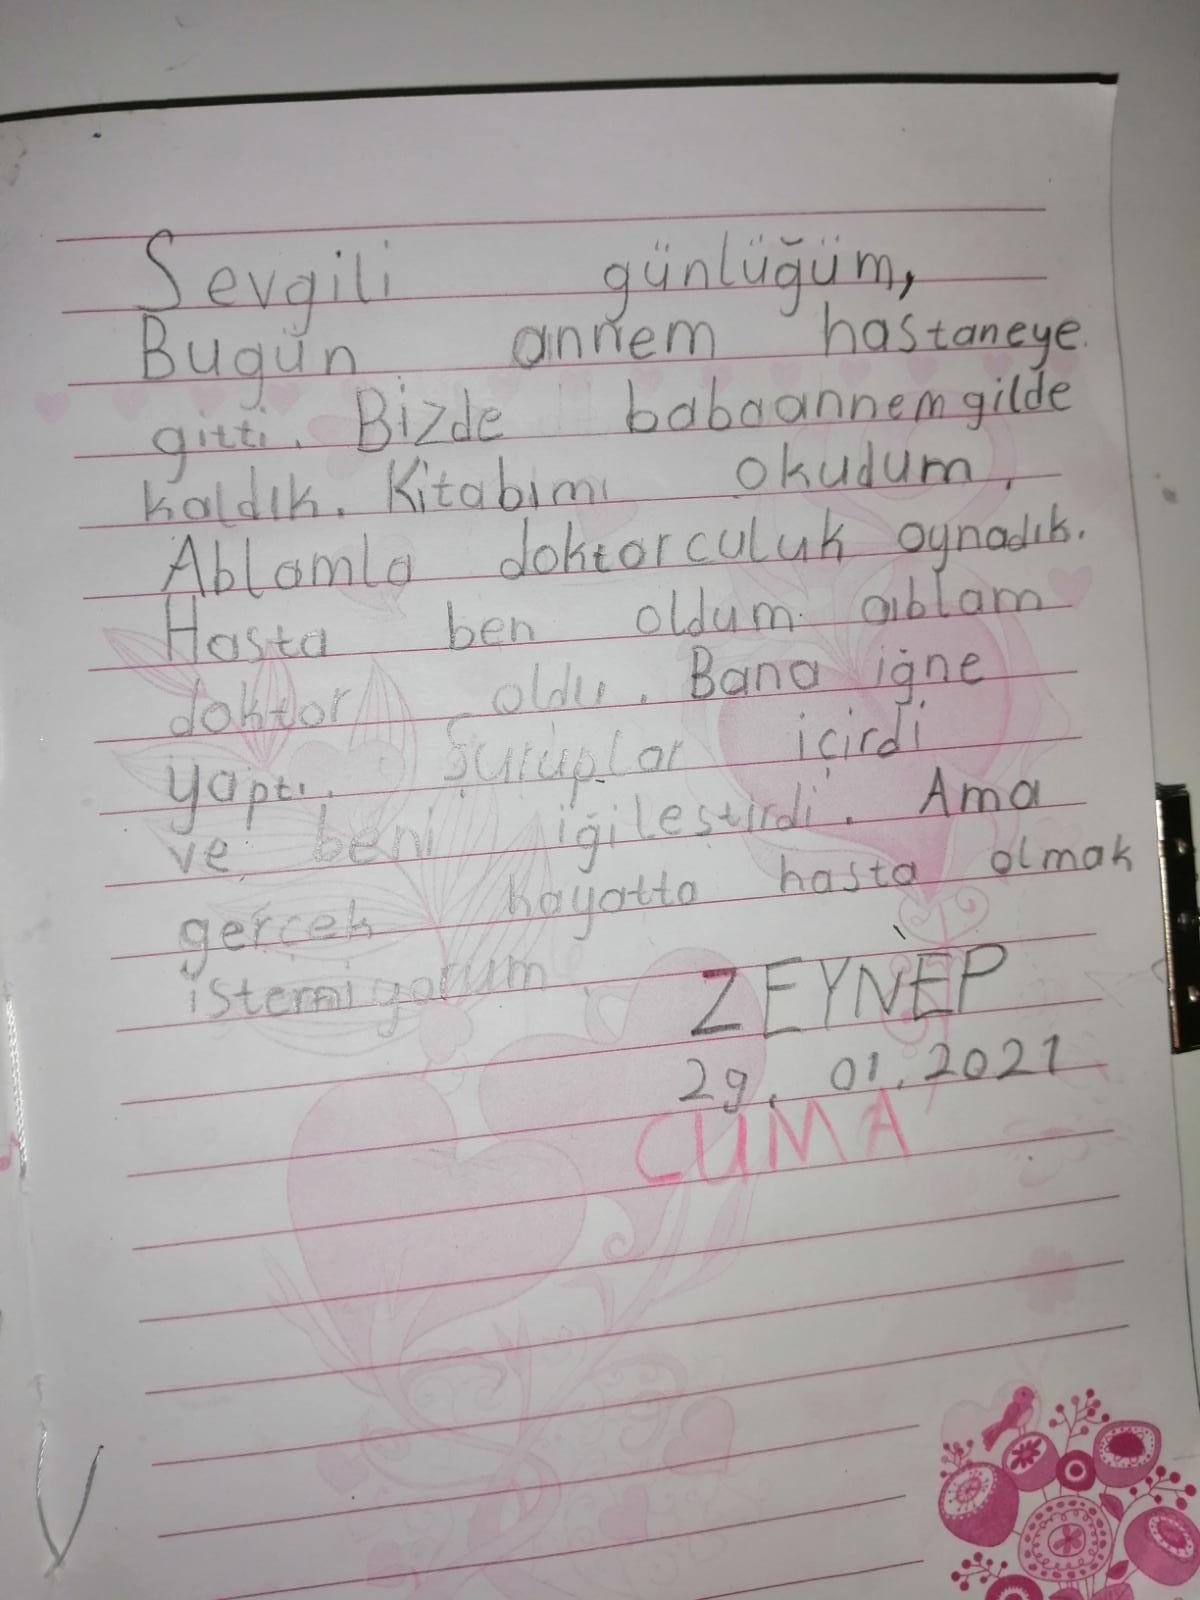 Sevgili günlüğüm,
Bugün annem hastaneye
gitti. Bizde babaannemgilde
kaldık. Kitabımı okudum.
Ablamla doktorculuk oynadık.
Hasta ben oldum ablam
doktor oldu. Bana iğne
yaptı. Şuruplar içirdi
ve beni iğileştirdi. Ama
gerçek hayatta hasta olmak
istemiyorum.
ZEYNEP
29.01.2021
CUMA